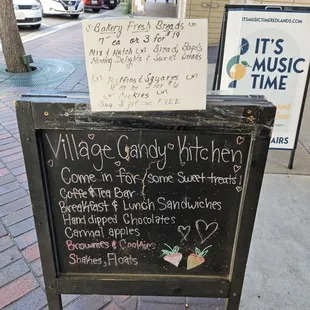 Bakery Fresh Breads
7 ea or 3 for $19
Mix & Match
Bread, Bagels
Morning Delights & Sweet Breads
Muffins & Squares
Cookies
Buy 2 get one FREE
Village Candy Kitchen
Come in for some sweet treats!
Coffe & Tea Bar
Breakfast & Lunch Sandwiches
Hand dipped Chocolates
Carmal apples
Brownies & Cookies
Shakes, Floats
ITSMUSICTIMEREDLANDS.COM
IT'S
MUSIC
TIME